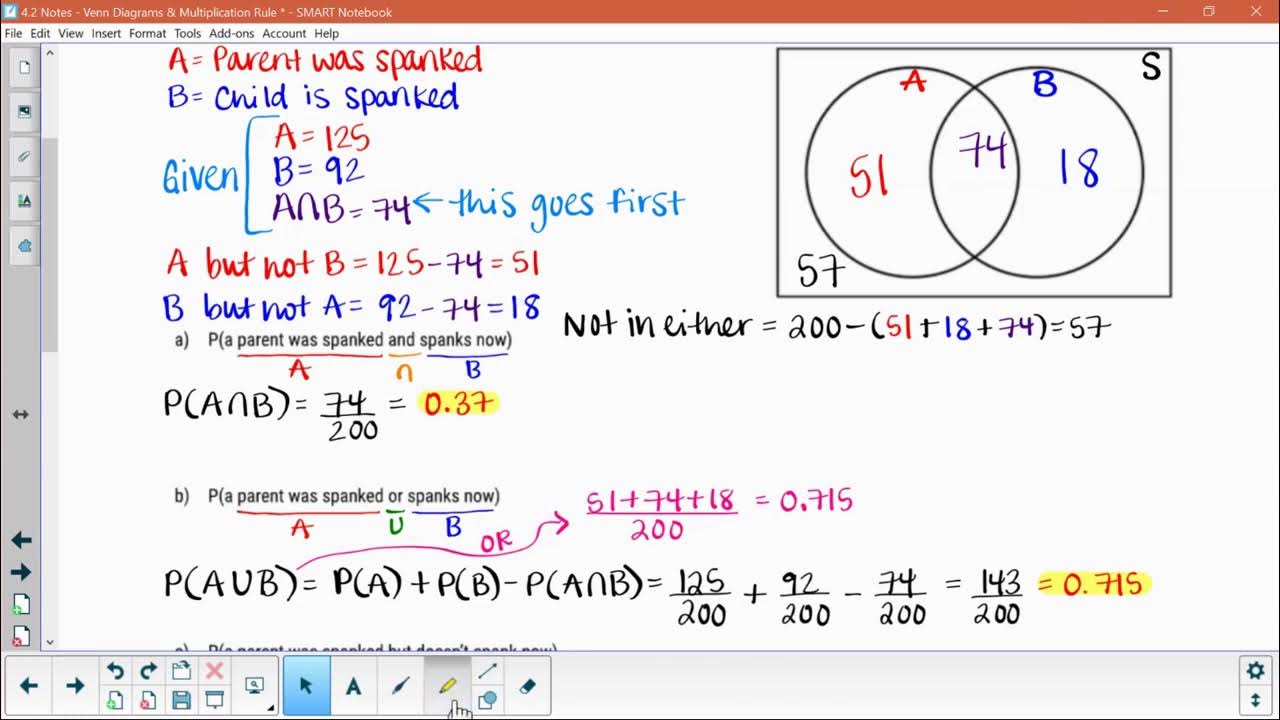 4.2 Notes - Venn Diagrams & Multiplication Rule * - SMART Notebook
File Edit View Insert Format Tools Add-ons Account Help
A = Parent was spanked
B = Child is spanked
Given
A = 125
B = 92
A∩B = 74 ← this goes first
A but not B = 125 - 74 = 51
B but not A = 92 - 74 = 18
A
B
S
51
74
18
57
Not in either = 200 - (51 + 18 + 74) = 57
a) P(a parent was spanked and spanks now)
A ∩ B
P(A∩B) = 74/200 = 0.37
b) P(a parent was spanked or spanks now)
A U B
OR
51+74+18/200 = 0.715
P(A∪B) = P(A) + P(B) - P(A∩B) = 125/200 + 92/200 - 74/200 = 143/200 = 0.715
c) P(a parent was spanked but doesn't spank now)
A